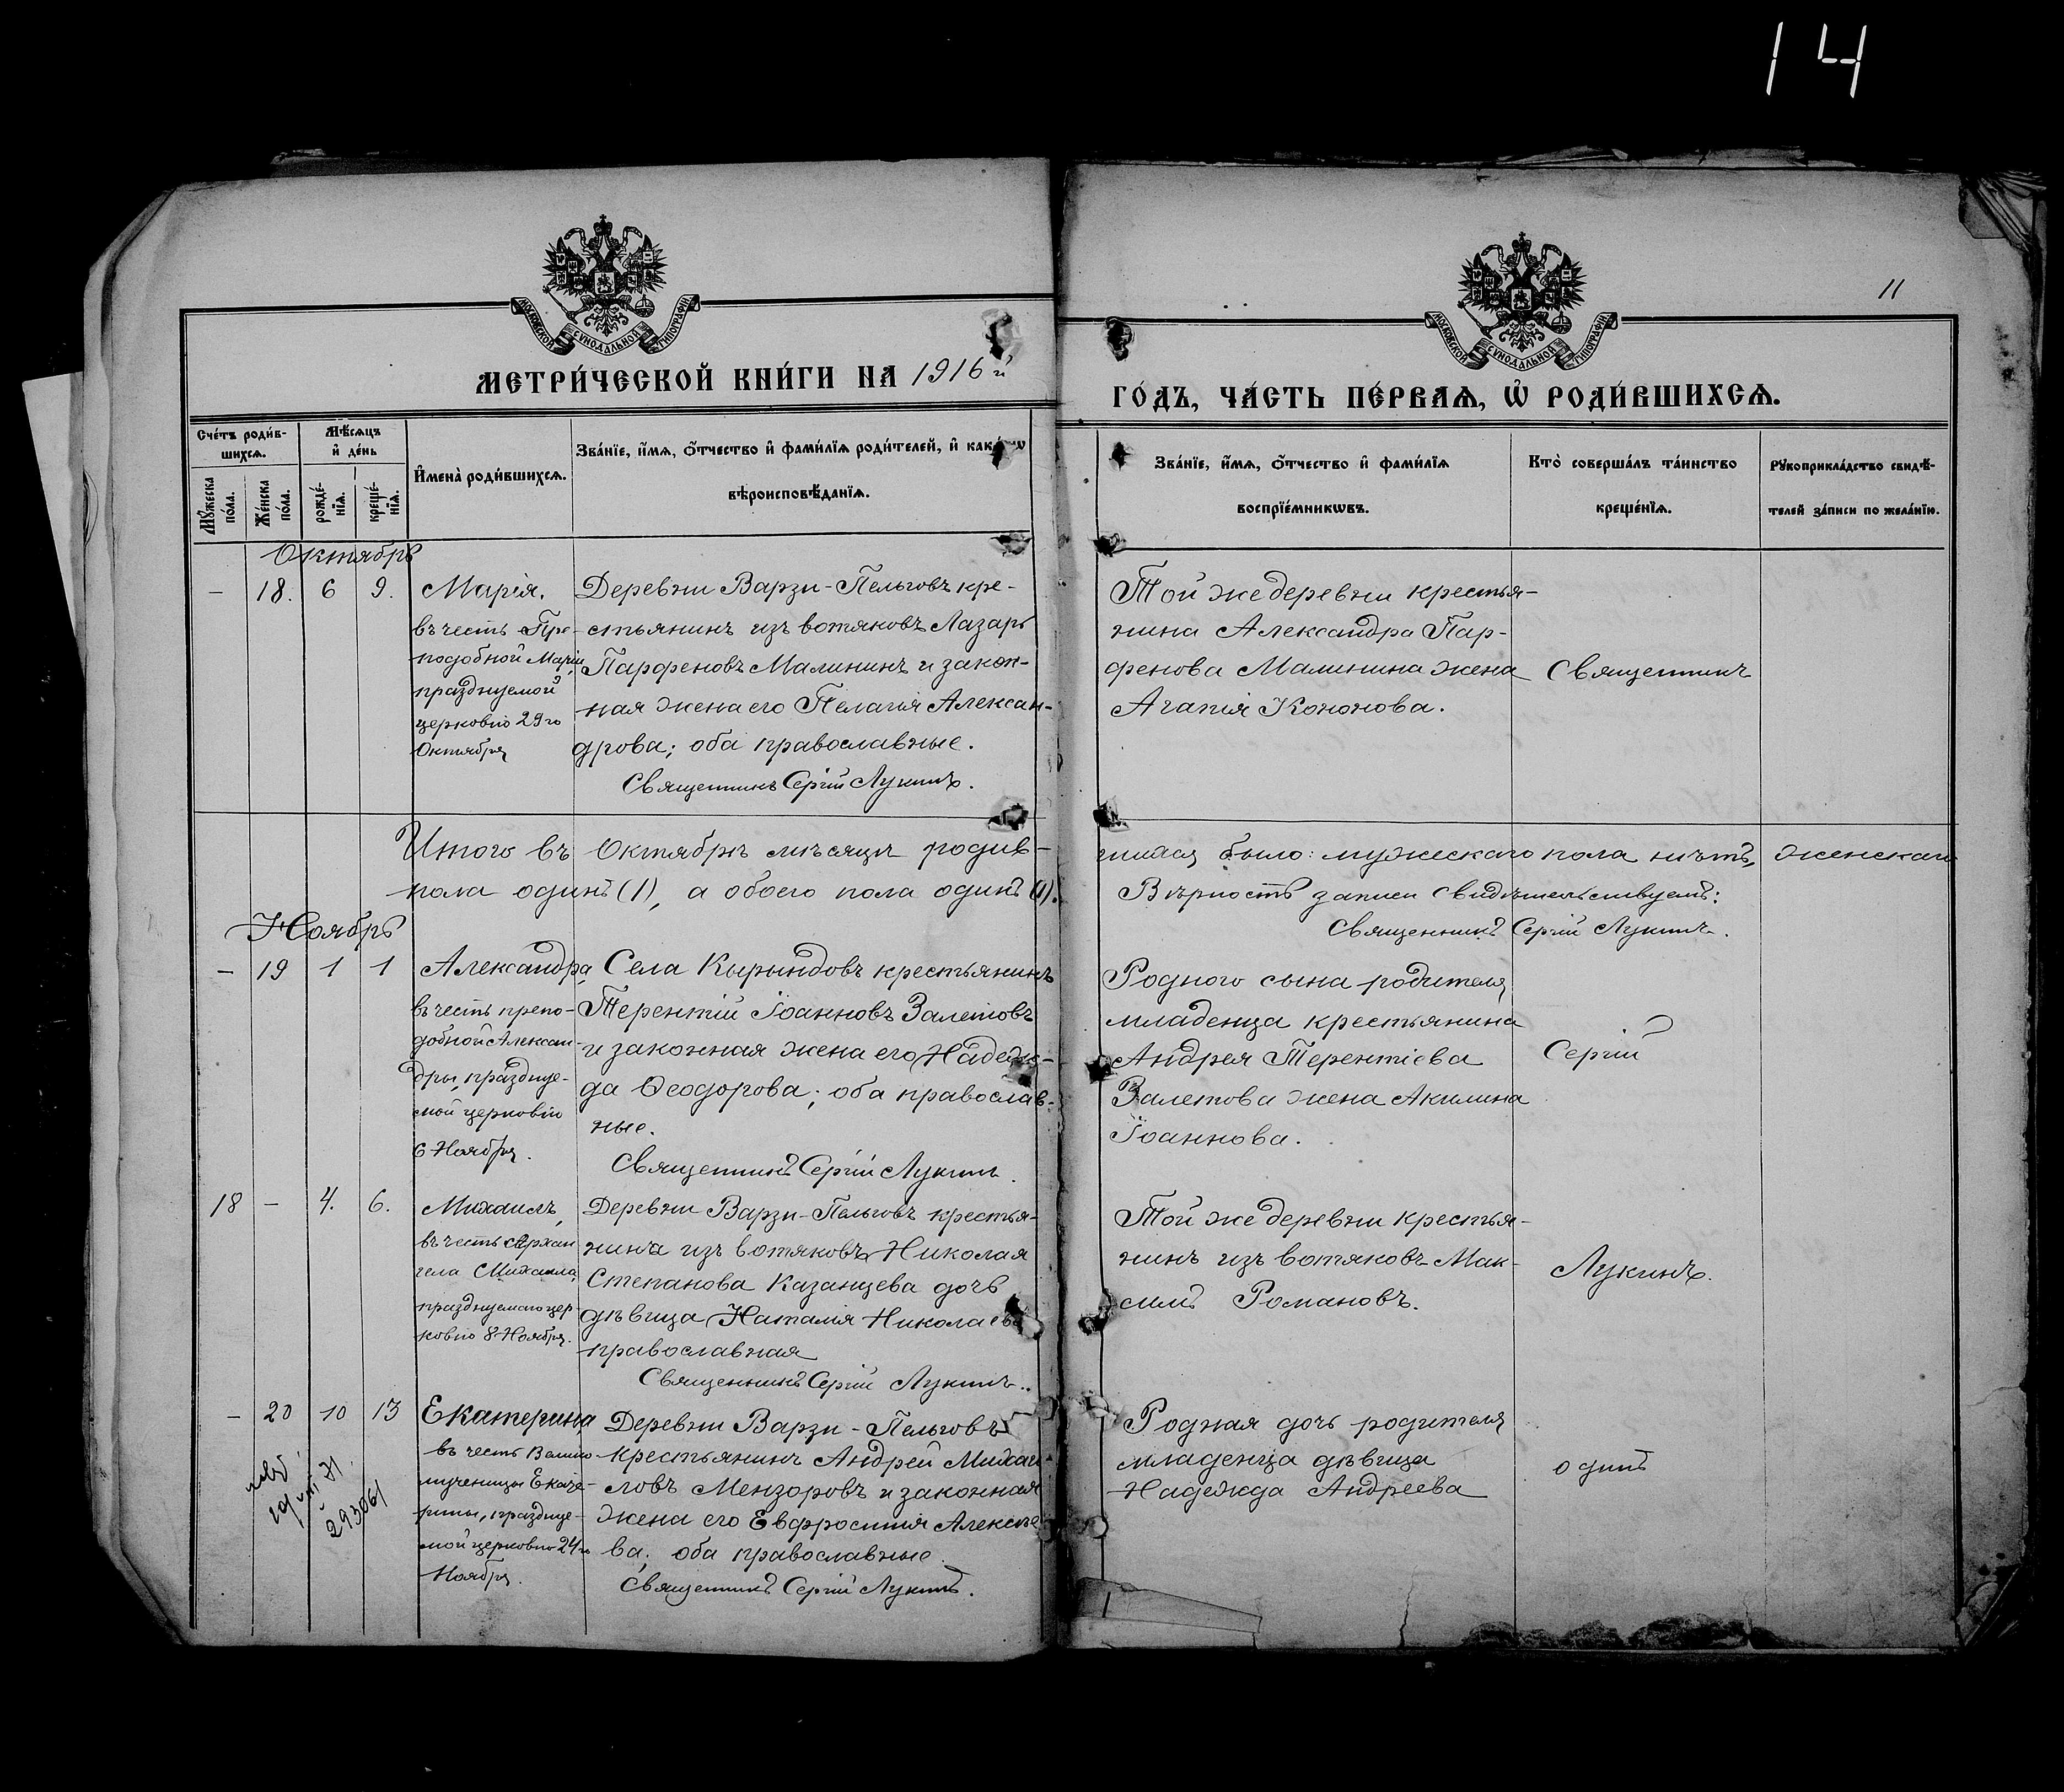 14
11
МОСКОВСКОЙ СУНОДАЛЬНОЙ ТИПОГРАФІИ
МОСКОВСКОЙ СУНОДАЛЬНОЙ ТИПОГРАФІИ
МЕТРИ́ЧЕСКОЙ КНИ́ГИ НА 1916 й
ГО́ДЪ, ЧА́СТЬ ПЕ́РВАѦ, Ѽ РОДИ́ВШИХСѦ.
Сче́тъ роди́в-
шихсѧ.
Мѣ́сѧцъ
и҆ де́нь
Мꙋ́жеска
по́ла.
Же́нска
по́ла.
рожде́-
нїѧ.
креще́-
нїѧ.
И҆мена̀ роди́вшихсѧ.
Зва́нїе, и҆́мѧ, ѻ҆́тчество и҆ фами́лїѧ роди́телей, и҆
вѣроисповѣ́данїѧ.
Зва́нїе, и҆́мѧ, ѻ҆́тчество и҆ фами́лїѧ
воспрїе́мникѡвъ.
Кто̀ соверша́лъ та́инство
креще́нїѧ.
Рꙋкоприкла́дство свидѣ́-
телей за́писи по жела́нїю.
Октябрь
– 18. 6 9.
Марія,
въ честь Пре-
подобной Маріи,
празднуемой
церковію 29го
Октября
Деревни Варзи-Пельговъ кре-
стьянинъ изъ вотяковъ Лазарь
Парфеновъ Малининъ и закон-
ная жена его Пелагія Алексан-
дрова; оба православные.
Священникъ Сергій Лукинъ.
Той же деревни крестья-
нина Александра Пар-
фенова Малинина жена
Агапія Кононова.
Священникъ
Итого въ Октябрѣ мѣсяцѣ родив-
шихся было: мужескаго пола нѣтъ, женскаго
пола одинъ (1), а обоего пола одинъ (1).
Вѣрность записи свидѣтельствуемъ:
Священникъ Сергій Лукинъ.
Ноябрь
– 19 1 1
Александра,
въ честь препо-
добной Алексан-
дры, праздние-
мой церковію
6 Ноября.
Села Кырындовъ крестьянинъ
Терентій Іоанновъ Залетовъ
и законная жена его Надеж-
да Ѳеодорова; оба православ-
ные.
Священникъ Сергій Лукинъ.
Родного сына родителя
младенца крестьянина
Андрея Терентіева
Залетова жена Акилина
Іоаннова.
Сергій
18 – 4. 6.
Михаилъ,
въ честь Архан
гела Михаила,
празднуемаго цер-
ковію 8 Ноября.
Деревни Варзи-Пельговъ крестья-
нина изъ вотяковъ Николая
Степанова Казанцева дочь
дѣвица Наталія Николаева
православная
Священникъ Сергій Лукинъ.
Той же деревни крестья-
нинъ изъ вотяковъ Мак-
симъ Романовъ.
Лукинъ.
– 20 10 13
Екатерина,
въ честь Велико-
мученицы Екате-
рины, праздние-
мой церковію 24го
Ноября.
293061
Деревни Варзи-Пельговъ
крестьянинъ Андрей Михаи-
ловъ Мензоровъ и законная
жена его Евфросинія Алексѣе
ва; оба православные.
Священникъ Сергій Лукинъ.
Родная дочь родителя
младенца дѣвица
Надежда Андреева
одинъ